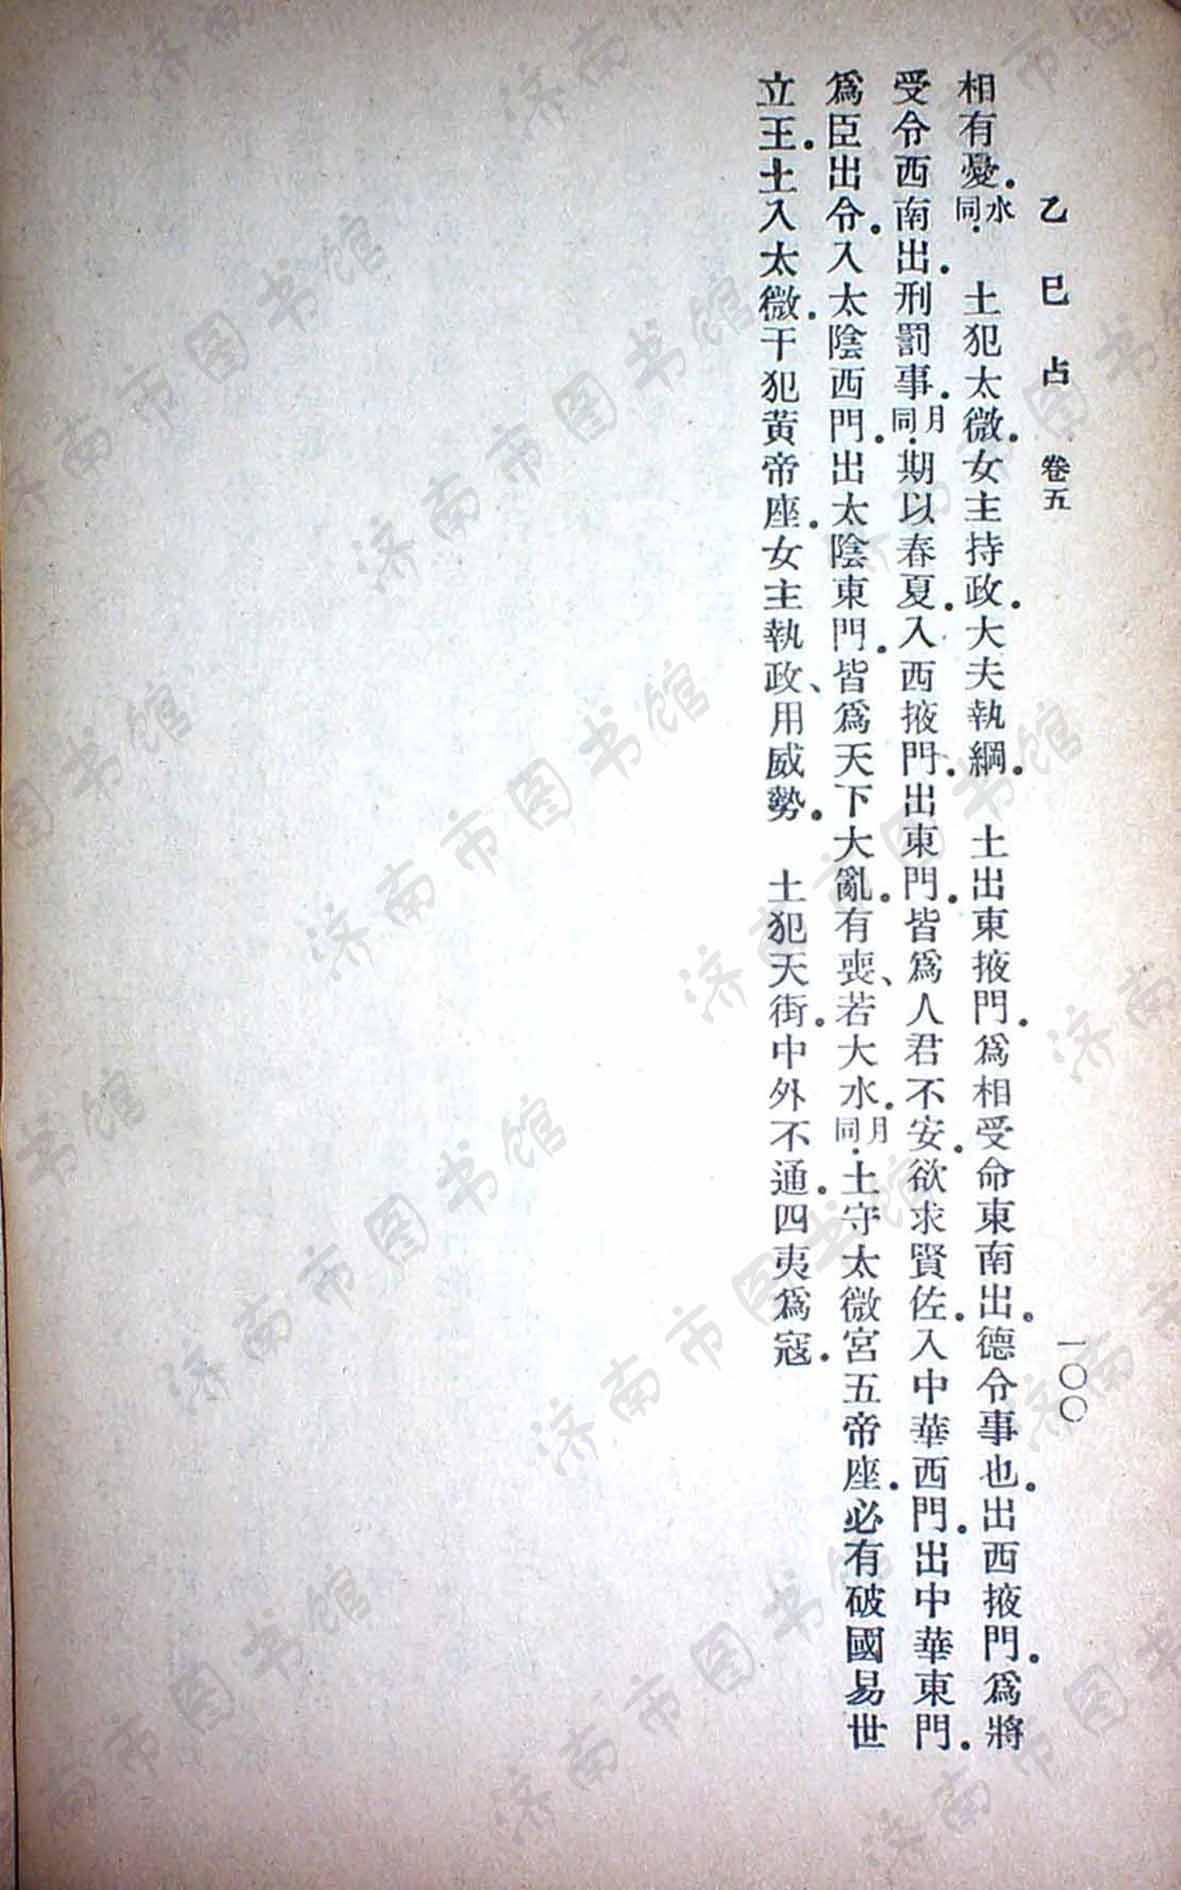 乙巳占 卷五 一〇〇
相有憂。水同。 土犯太微。女主持政。大夫執綱。 土出東掖門。爲相受命東南出。德令事也。出西掖門。爲將
受令西南出。刑罰事。月同。期以春夏。入西掖門。出東門。皆爲人君不安。欲求賢佐。入中華西門。出中華東門。
爲臣出令。入太陰西門。出太陰東門。皆爲天下大亂。有喪、若大水。月同。土守太微宮五帝座。必有破國易世
立王。土入太微。干犯黃帝座。女主執政、用威勢。 土犯天街。中外不通。四夷爲寇。
济南市图书馆